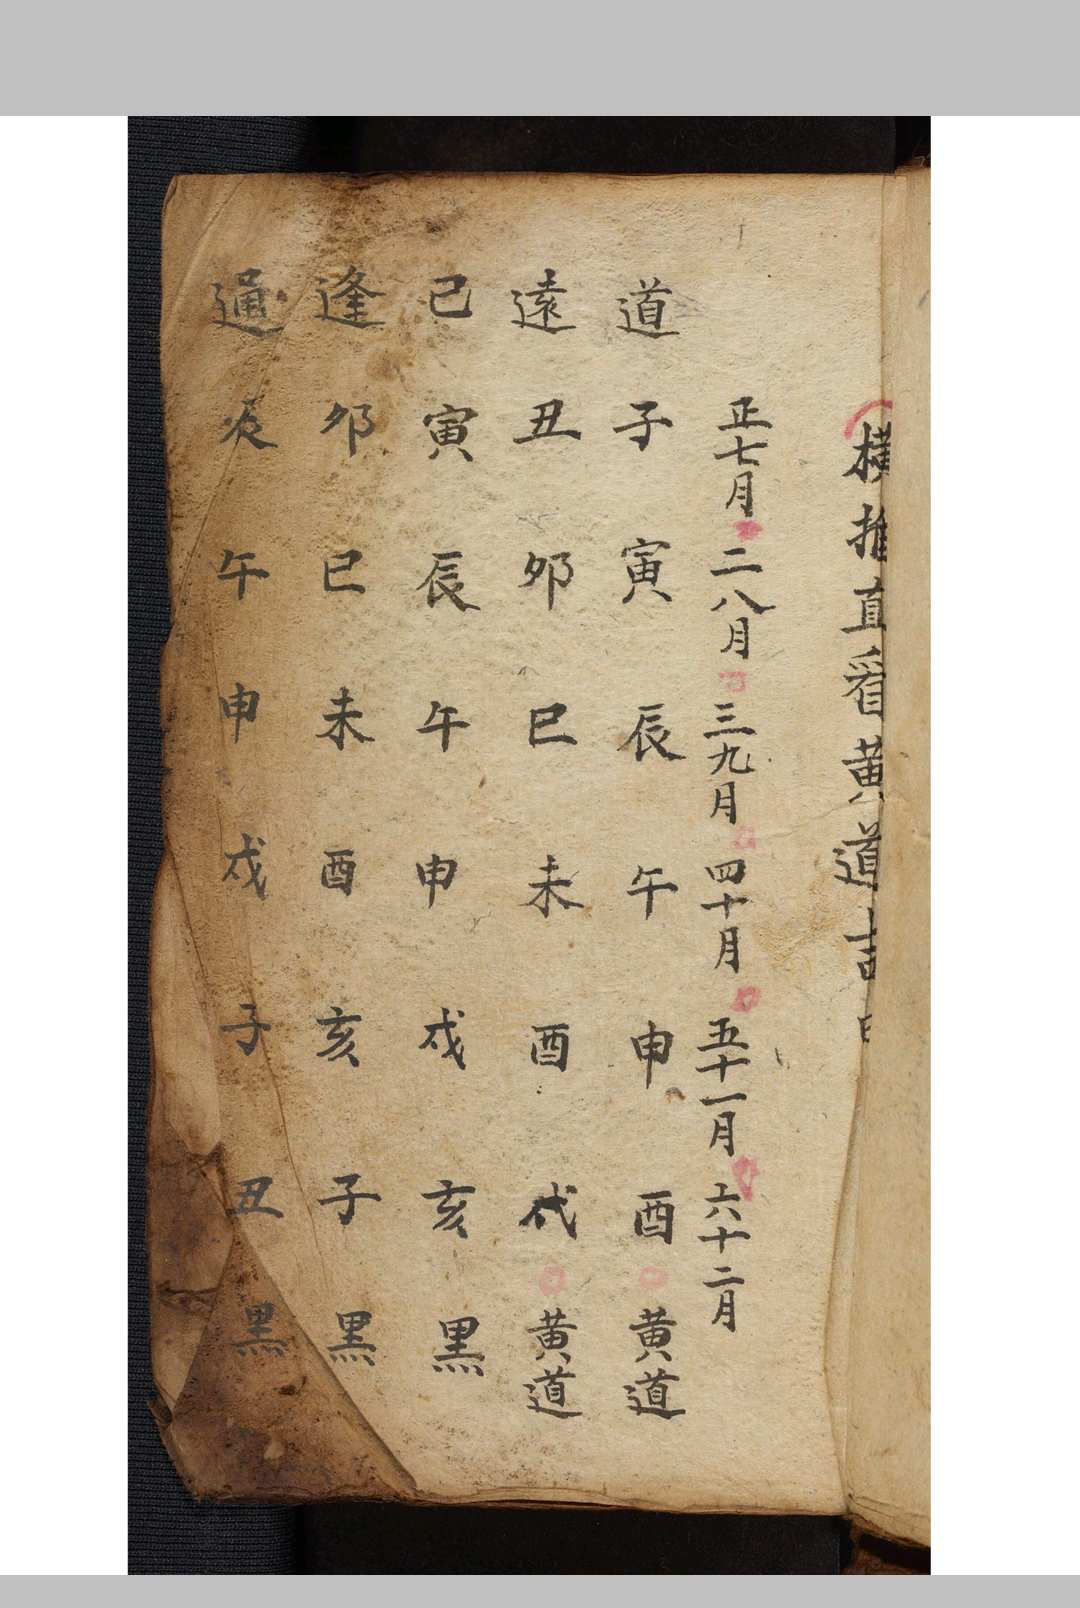 橫推直看黄道吉日
正七月 二八月 三九月 四十月 五十一月 六十二月
道 子 寅 辰 午 申 酉 黄道
遠 丑 卯 巳 未 酉 戌 黄道
己 寅 辰 午 申 戌 亥 黒
逢 卯 巳 未 酉 亥 子 黒
通 辰 午 申 戌 子 丑 黒